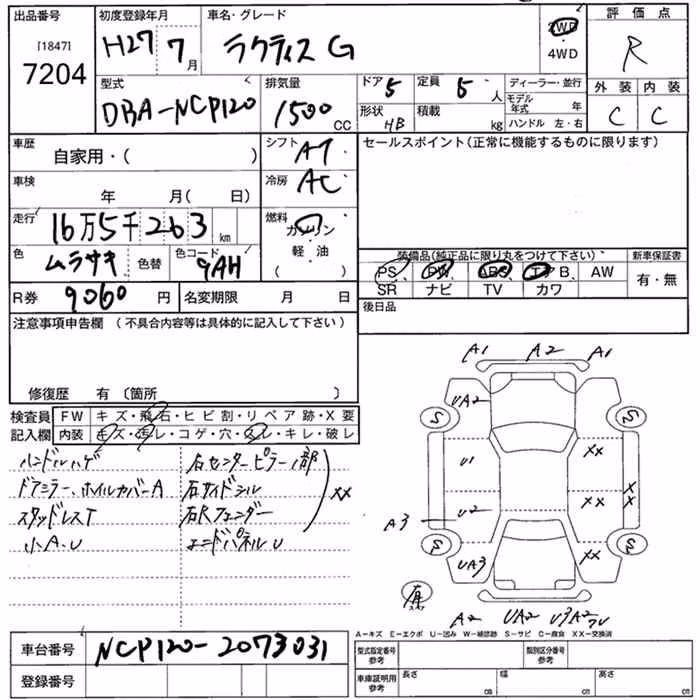 出品番号
[1847]
7204
初度登録年月
H27 7月
車名・グレード
ラクティス G
2WD
・
4WD
評価点
R
型式
DBA-NCP120
排気量
1500 CC
ドア 5
定員 5 人
ディーラー・並行
形状 HB
積載 kg
モデル年式 年
ハンドル 左・右
外装 内装
C C
車歴
自家用・( )
シフト AT
セールスポイント(正常に機能するものに限ります)
車検
年 月( 日)
冷房 AC
走行
16万5千263 km
燃料
ガソリン
軽・油
( )
色 ムラサキ
色替
色コード 9AH
装備品(純正品に限り丸をつけて下さい)
PS PW ABS エアB AW
SR ナビ TV カワ
新車保証書
有・無
R券 9060 円
名変期限 月 日
後日品
注意事項申告欄 (不具合内容等は具体的に記入して下さい)
修復歴 有 〔箇所 〕
検査員記入欄
FW キズ・飛石・ヒビ割・リペア跡・X要
内装 キズ・汚レ・コゲ・穴・スレ・キレ・破レ
ハンドルハゲ
ドアミラー、ホイルカバーA
スタッドレスT
小A.U
右センターピラー1部
右サイドシル
右Rフェンダー
エンドパネルU
XX
A1 A2 A1
UA2
S S
U1 XX
U2 XX X X
A3
S S
UA3 XX
A2 UA2 U3
A-キズ E-エクボ U-凹み W-補修跡 S-サビ C-腐食 XX-交換済
車台番号 NCP120-2073031
登録番号
型式指定番号 参考
類別区分番号 参考
車庫証明用 参考
長さ cm
幅 cm
高さ cm